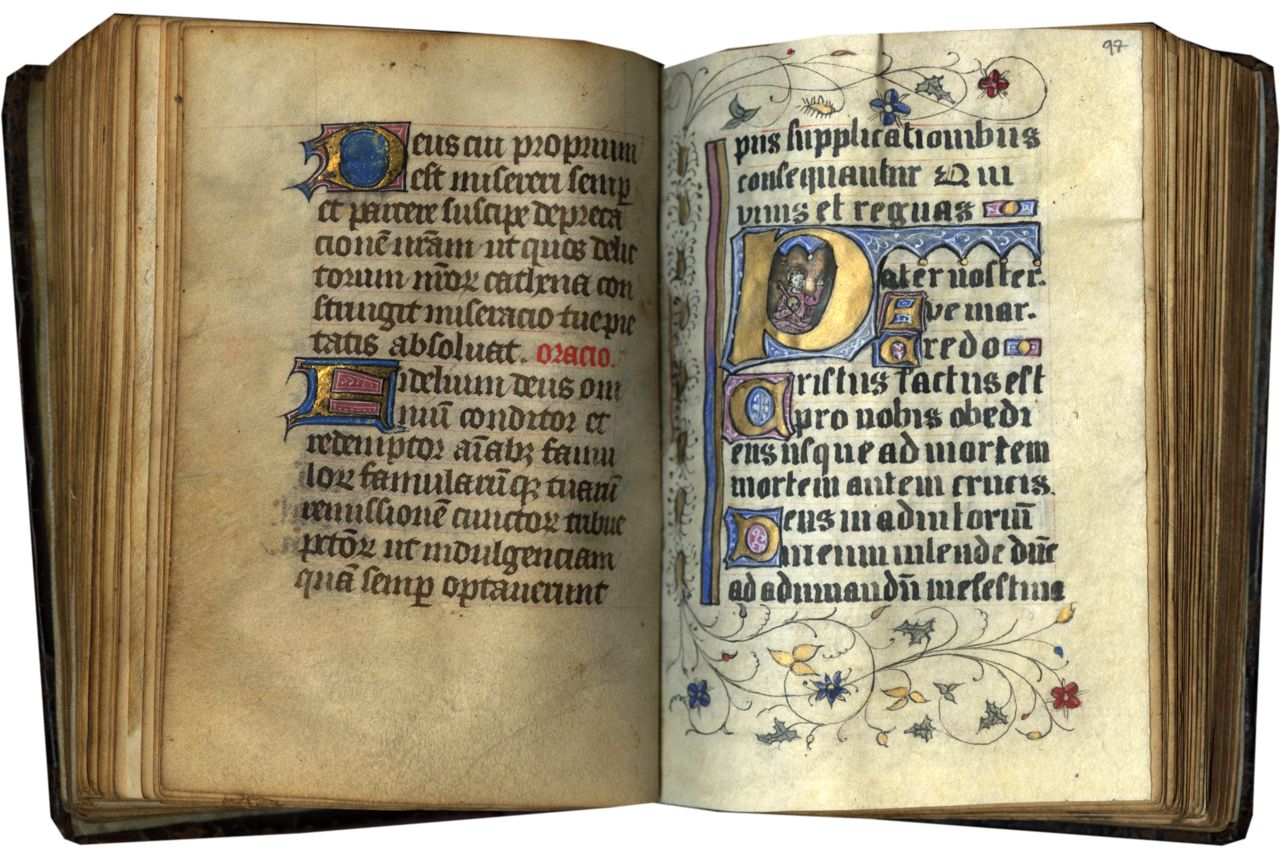 Deus cui proprium
est misereri semꝑ
et parcere suscipe depreca
cionē nr̄am ut quos delic
torum nr̄oꝝ cathena con
stringit miseracio tue pie
tatis absoluat. oracio.
Fidelium deus om
niū conditor et
redemptor aīabꝫ famu
loꝝ famularūqꝫ tuarū
remissionē cunctoꝝ tribue
pctōꝝ ut indulgenciam
quā semꝑ optauerunt
97
piis supplicationibus
consequantur Qui
viuis et regnas
Pater noster.
Ave mar.
Credo
Cristus factus est
pro nobis obedi
ens usque ad mortem
mortem autem crucis.
Deus in adiutoriū
meum intende dn̄e
ad adiuuandū me festina